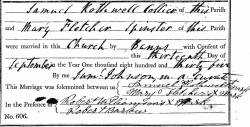 Samuel Rothwell Collier of this Parish
and Mary Fletcher Spinster of this Parish
were married in this Church by Banns with Consent of
this thirteenth Day of
September in the Year One thousand eight hundred and thirty five
By me Sam Johnson
This Marriage was solemnized between us
In the Presence of
No. 606.